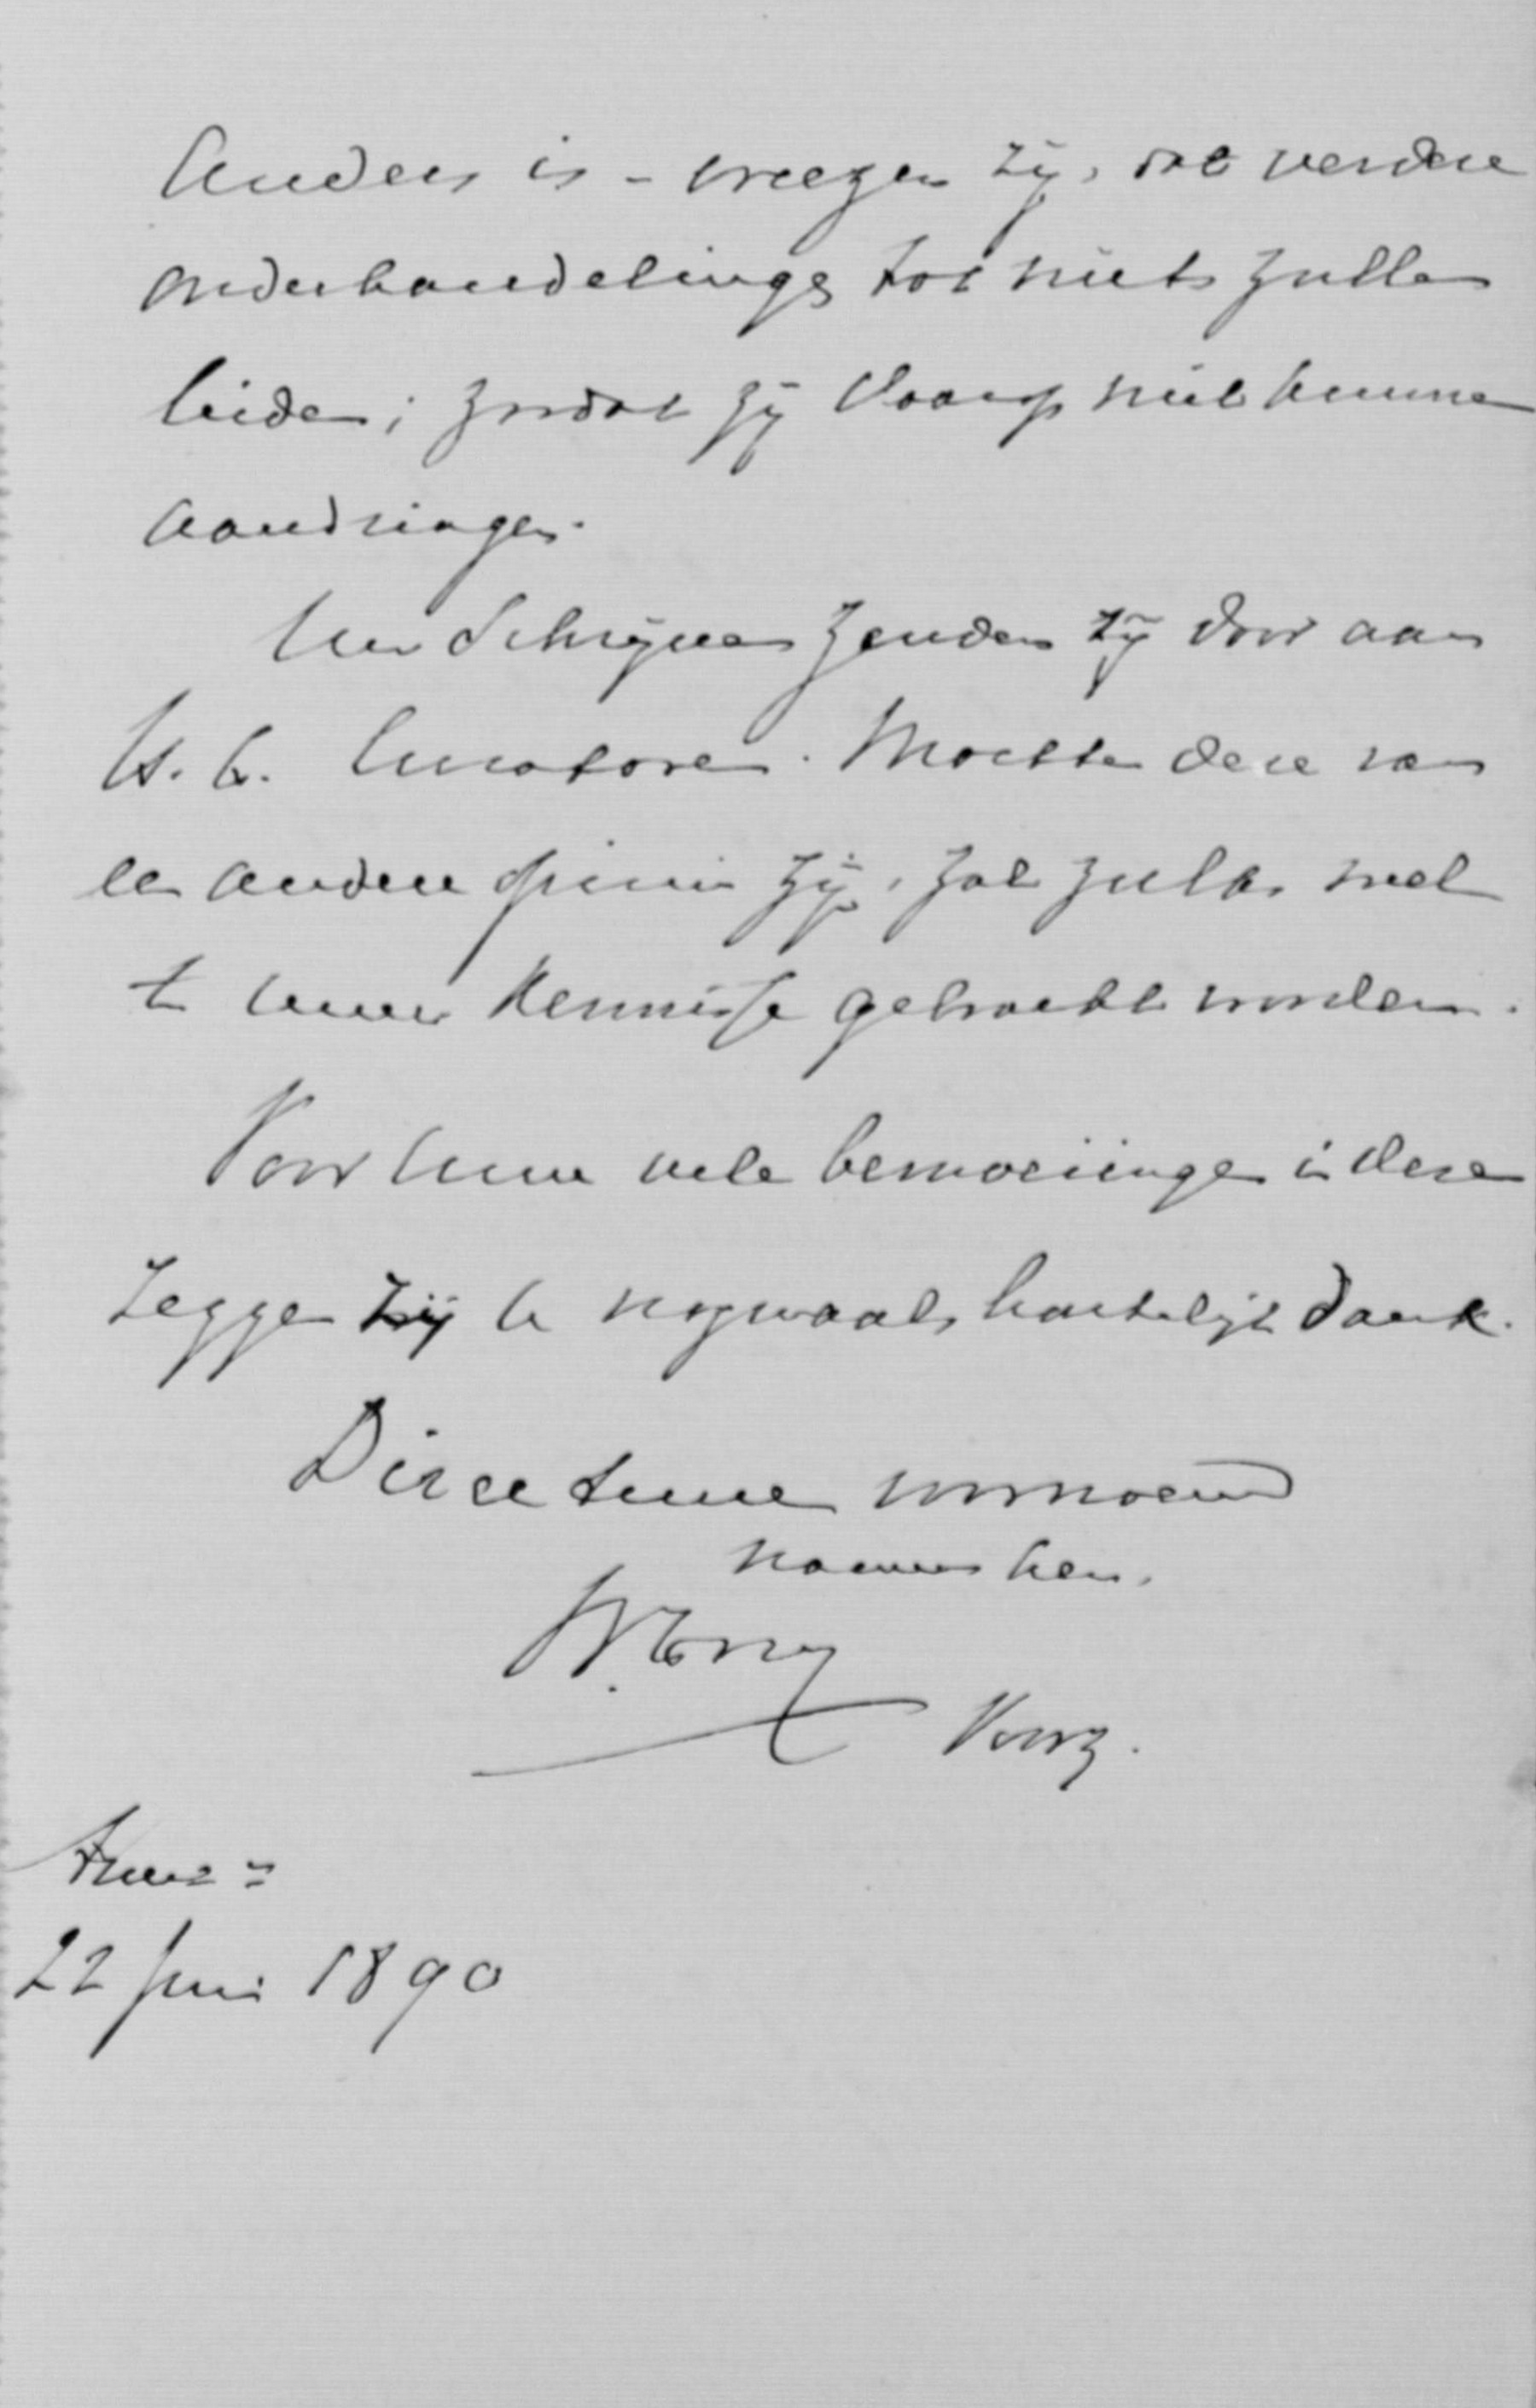 anders is – vreezen zij, dat verdere
onderhandelingen tot niets zullen
leiden; zoodat zij daarop niet kunnen
aandringen.
Uw schrijven zenden zij door aan
H. C. Curatoren. Mochten deze van
een andere opinie zijn, zal zulks wel
te uwer kennisse gebracht worden.
Voor uwe vele bemoeiingen in deze
zeggen zij U nogmaals hartelijk dank.
Directeuren voornoemd
namens hen,
Voorz.
Amst
22 Juni 1890